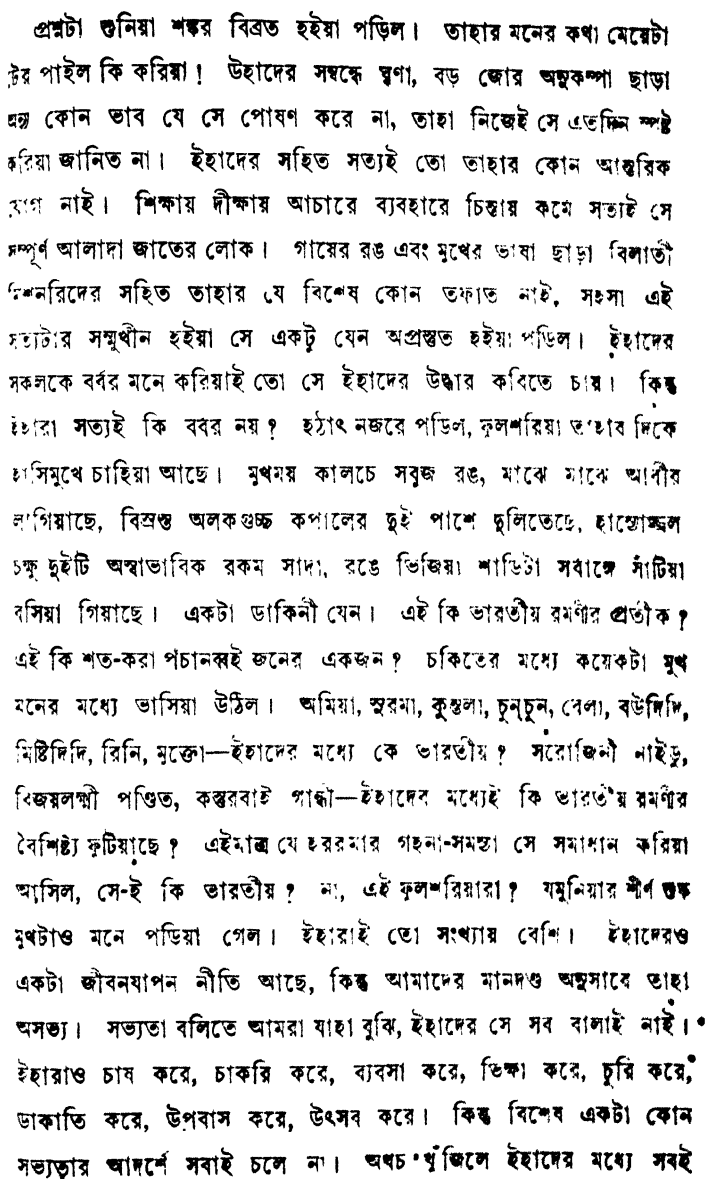 প্রশ্নটা শুনিয়া শঙ্কর বিব্রত হইয়া পড়িল। তাহার মনের কথা মেয়েটা
টের পাইল কি করিয়া! উহাদের সম্বন্ধে ঘৃণা, বড় জোর অনুকম্পা ছাড়া
অন্য কোন ভাব যে সে পোষণ করে না, তাহা নিজেই সে এতদিন স্পষ্ট
করিয়া জানিত না। ইহাদের সহিত সত্যই তো তাহার কোন আন্তরিক
যোগ নাই। শিক্ষায় দীক্ষায় আচারে ব্যবহারে চিন্তায় কর্মে সত্যই সে
সম্পূর্ণ আলাদা জাতের লোক। গায়ের রঙ এবং মুখের ভাষা ছাড়া বিলাতী
মিশনরিদের সহিত তাহার যে বিশেষ কোন তফাত নাই, সহসা এই
সত্যটার সম্মুখীন হইয়া সে একটু যেন অপ্রস্তুত হইয়া পড়িল। ইহাদের
সকলকে বর্বর মনে করিয়াই তো সে ইহাদের উদ্ধার করিতে চায়। কিন্তু
ইহারা সত্যই কি বর্বর নয়? হঠাৎ নজরে পড়িল, ফুলশরিয়া তাহার দিকে
হাসিমুখে চাহিয়া আছে। মুখময় কালচে সবুজ রঙ, মাঝে মাঝে আবীর
লাগিয়াছে, বিস্রস্ত অলকগুচ্ছ কপালের দুই পাশে দুলিতেছে, হাস্যোজ্জ্বল
চক্ষু দুইটি অস্বাভাবিক রকম সাদা, রঙে ভিজিয়া শাড়িটা সর্বাঙ্গে সাঁটিয়া
বসিয়া গিয়াছে। একটা ডাকিনী যেন। এই কি ভারতীয় রমণীর প্রতীক?
এই কি শত-করা পঁচানব্বই জনের একজন? চকিতের মধ্যে কয়েকটা মুখ
মনের মধ্যে ভাসিয়া উঠিল। অমিয়া, সুরমা, কুন্তলা, চুন্‌চুন, বেলা, বউদিদি,
মিষ্টিদিদি, রিনি, মুক্তো—ইহাদের মধ্যে কে ভারতীয়? সরোজিনী নাইডু,
বিজয়লক্ষ্মী পণ্ডিত, কস্তুরবাই গান্ধী—ইহাদের মধ্যেই কি ভারতীয় রমণীর
বৈশিষ্ট্য ফুটিয়াছে? এইমাত্র যে হররমার গহনা-সমস্যা সে সমাধান করিয়া
আসিল, সে-ই কি ভারতীয়? না, এই ফুলশরিয়ারা? যমুনিয়ার শীর্ণ শুষ্ক
মুখটাও মনে পড়িয়া গেল। ইহারাই তো সংখ্যায় বেশি। ইহাদেরও
একটা জীবনযাপন নীতি আছে, কিন্তু আমাদের মানদণ্ড অনুসারে তাহা
অসভ্য। সভ্যতা বলিতে আমরা যাহা বুঝি, ইহাদের সে সব বালাই নাই।
ইহারাও চাষ করে, চাকরি করে, ব্যবসা করে, ভিক্ষা করে, চুরি করে,
ডাকাতি করে, উপবাস করে, উৎসব করে। কিন্তু বিশেষ একটা কোন
সভ্যতার আদর্শে সবাই চলে না। অথচ খুঁজিলে ইহাদের মধ্যে সবই